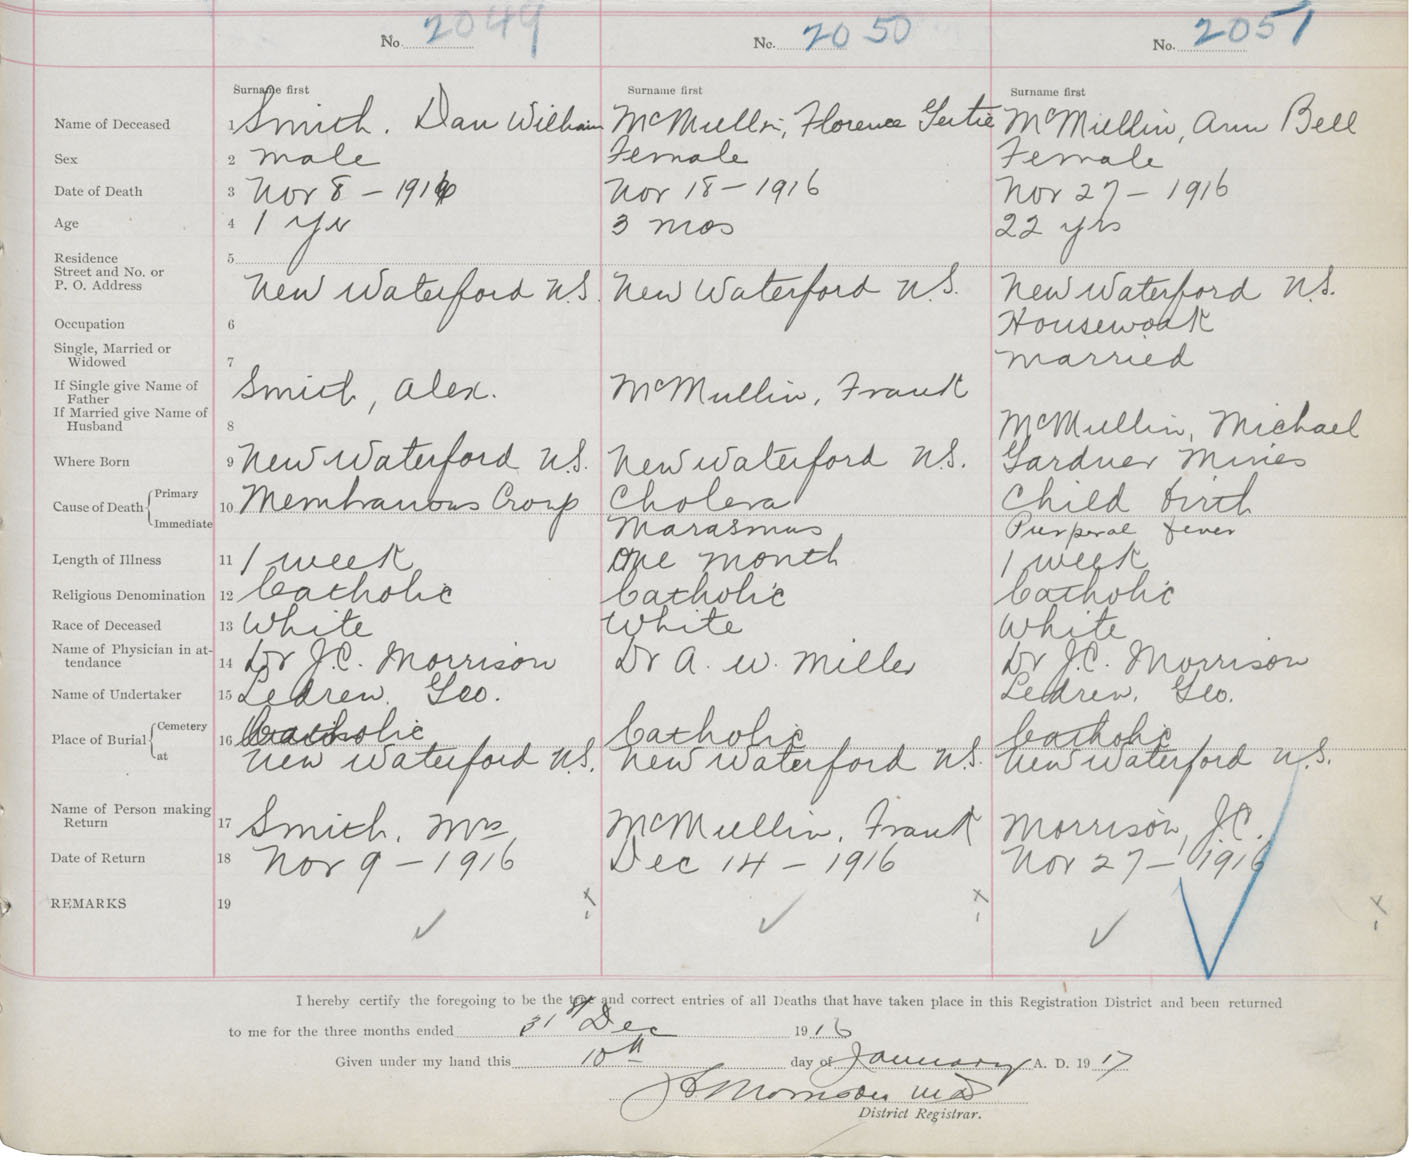 No. 2049 No. 2050 No. 2051
Surname first Surname first Surname first
Name of Deceased 1 Smith, Dan William McMullin, Florence Gertie McMullin, Ann Bell
Sex 2 male Female Female
Date of Death 3 Nov 8 - 1916 Nov 18 - 1916 Nov 27 - 1916
Age 4 1 yr 3 mos 22 yrs
Residence 5
Street and No. or
P. O. Address New Waterford N.S. New Waterford N.S. New Waterford N.S.
Occupation 6 Housework
Single, Married or
Widowed 7 married
If Single give Name of
Father Smith, Alex. McMullin, Frank
If Married give Name of
Husband 8 McMullin, Michael
Where Born 9 New Waterford N.S. New Waterford N.S. Gardner Mines
Cause of Death Primary 10 Membranous Croup Cholera Child birth
Immediate Marasmus Purperal fever
Length of Illness 11 1 week One month 1 week
Religious Denomination 12 Catholic Catholic Catholic
Race of Deceased 13 White White White
Name of Physician in at-
tendance 14 Dr J.C. Morrison Dr A. W. Miller Dr J.C. Morrison
Name of Undertaker 15 Ledrew, Geo. Ledrew, Geo.
Place of Burial Cemetery 16 Catholic Catholic Catholic
at New Waterford N.S. New Waterford N.S. New Waterford N.S.
Name of Person making
Return 17 Smith, Mrs McMullin, Frank Morrison, J.C.
Date of Return 18 Nov 9 - 1916 Dec 14 - 1916 Nov 27 - 1916
REMARKS 19
I hereby certify the foregoing to be the true and correct entries of all Deaths that have taken place in this Registration District and been returned
to me for the three months ended 31st Dec 1916
Given under my hand this 10th day of January A. D. 1917
JC Morrison MD
District Registrar.